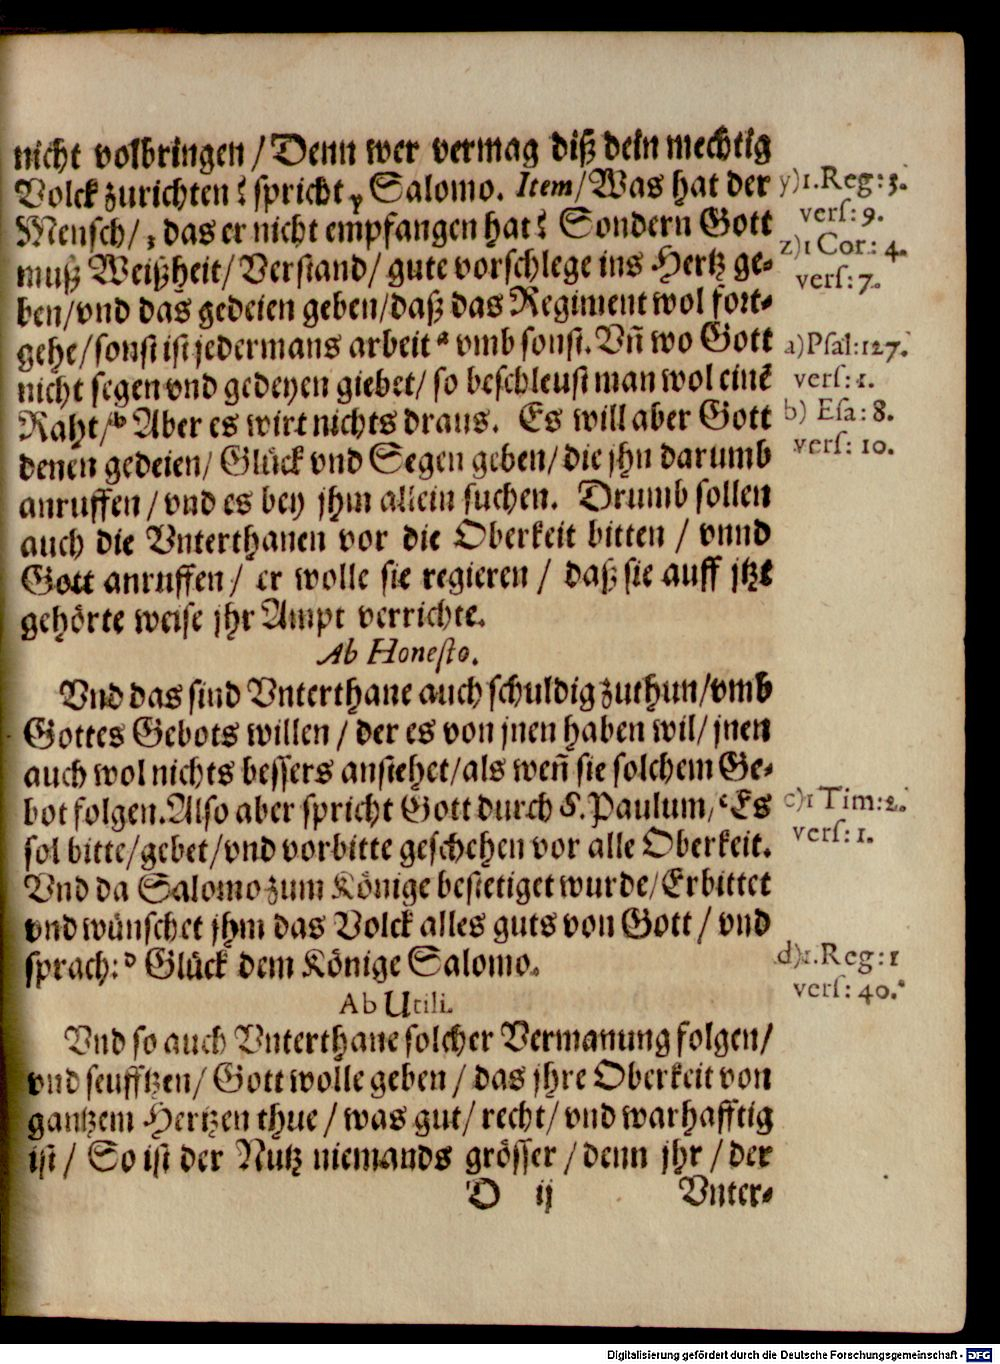 nicht volbringen / Denn wer vermag diß dein mechtig
Volck zurichten? spricht y Salomo. Item / Was hat der
Mensch / z das er nicht empfangen hat? Sondern Gott
muß Weißheit / Verstand / gute vorschlege ins Hertz ge-
ben / vnd das gedeien geben / daß das Regiment wol fort-
gehe / sonst ist jedermans arbeit a vmb sonst. Vñ wo Gott
nicht segen vnd gedeyen giebet / so beschleust man wol einē
Raht / b Aber es wirt nichts draus. Es will aber Gott
denen gedeien / Glück vnd Segen geben / die jhn darumb
anruffen / vnd es bey jhm allein suchen. Drumb sollen
auch die Vnterthanen vor die Oberkeit bitten / vnnd
Gott anruffen / er wolle sie regieren / daß sie auff jtzt
gehörte weise jhr Ampt verrichte.
y) 1. Reg: 3.
vers: 9.
z) 1 Cor: 4.
vers: 7.
a) Psal: 127.
vers: 1.
b) Esa: 8.
vers: 10.
Ab Honesto.
Vnd das sind Vnterthane auch schuldig zuthun / vmb
Gottes Gebots willen / der es von jnen haben wil / jnen
auch wol nichts bessers anstehet / als weñ sie solchem Ge-
bot folgen. Also aber spricht Gott durch S. Paulum, c Es
sol bitte / gebet / vnd vorbitte geschehen vor alle Oberkeit.
Vnd da Salomo zum Könige bestetiget wurde / Erbittet
vnd wünschet jhm das Volck alles guts von Gott / vnd
sprach: d Glück dem Könige Salomo.
c) 1 Tim: 2.
vers: 1.
d) 1. Reg: 1
vers: 40.
Ab Utili.
Vnd so auch Vnterthane solcher Vermanung folgen /
vnd seufftzen / Gott wolle geben / das jhre Oberkeit von
gantzem Hertzen thue / was gut / recht / vnd warhafftig
ist / So ist der Nutz niemands grösser / denn jhr / der
D ij Vnter-
Digitalisierung gefördert durch die Deutsche Forschungsgemeinschaft - DFG